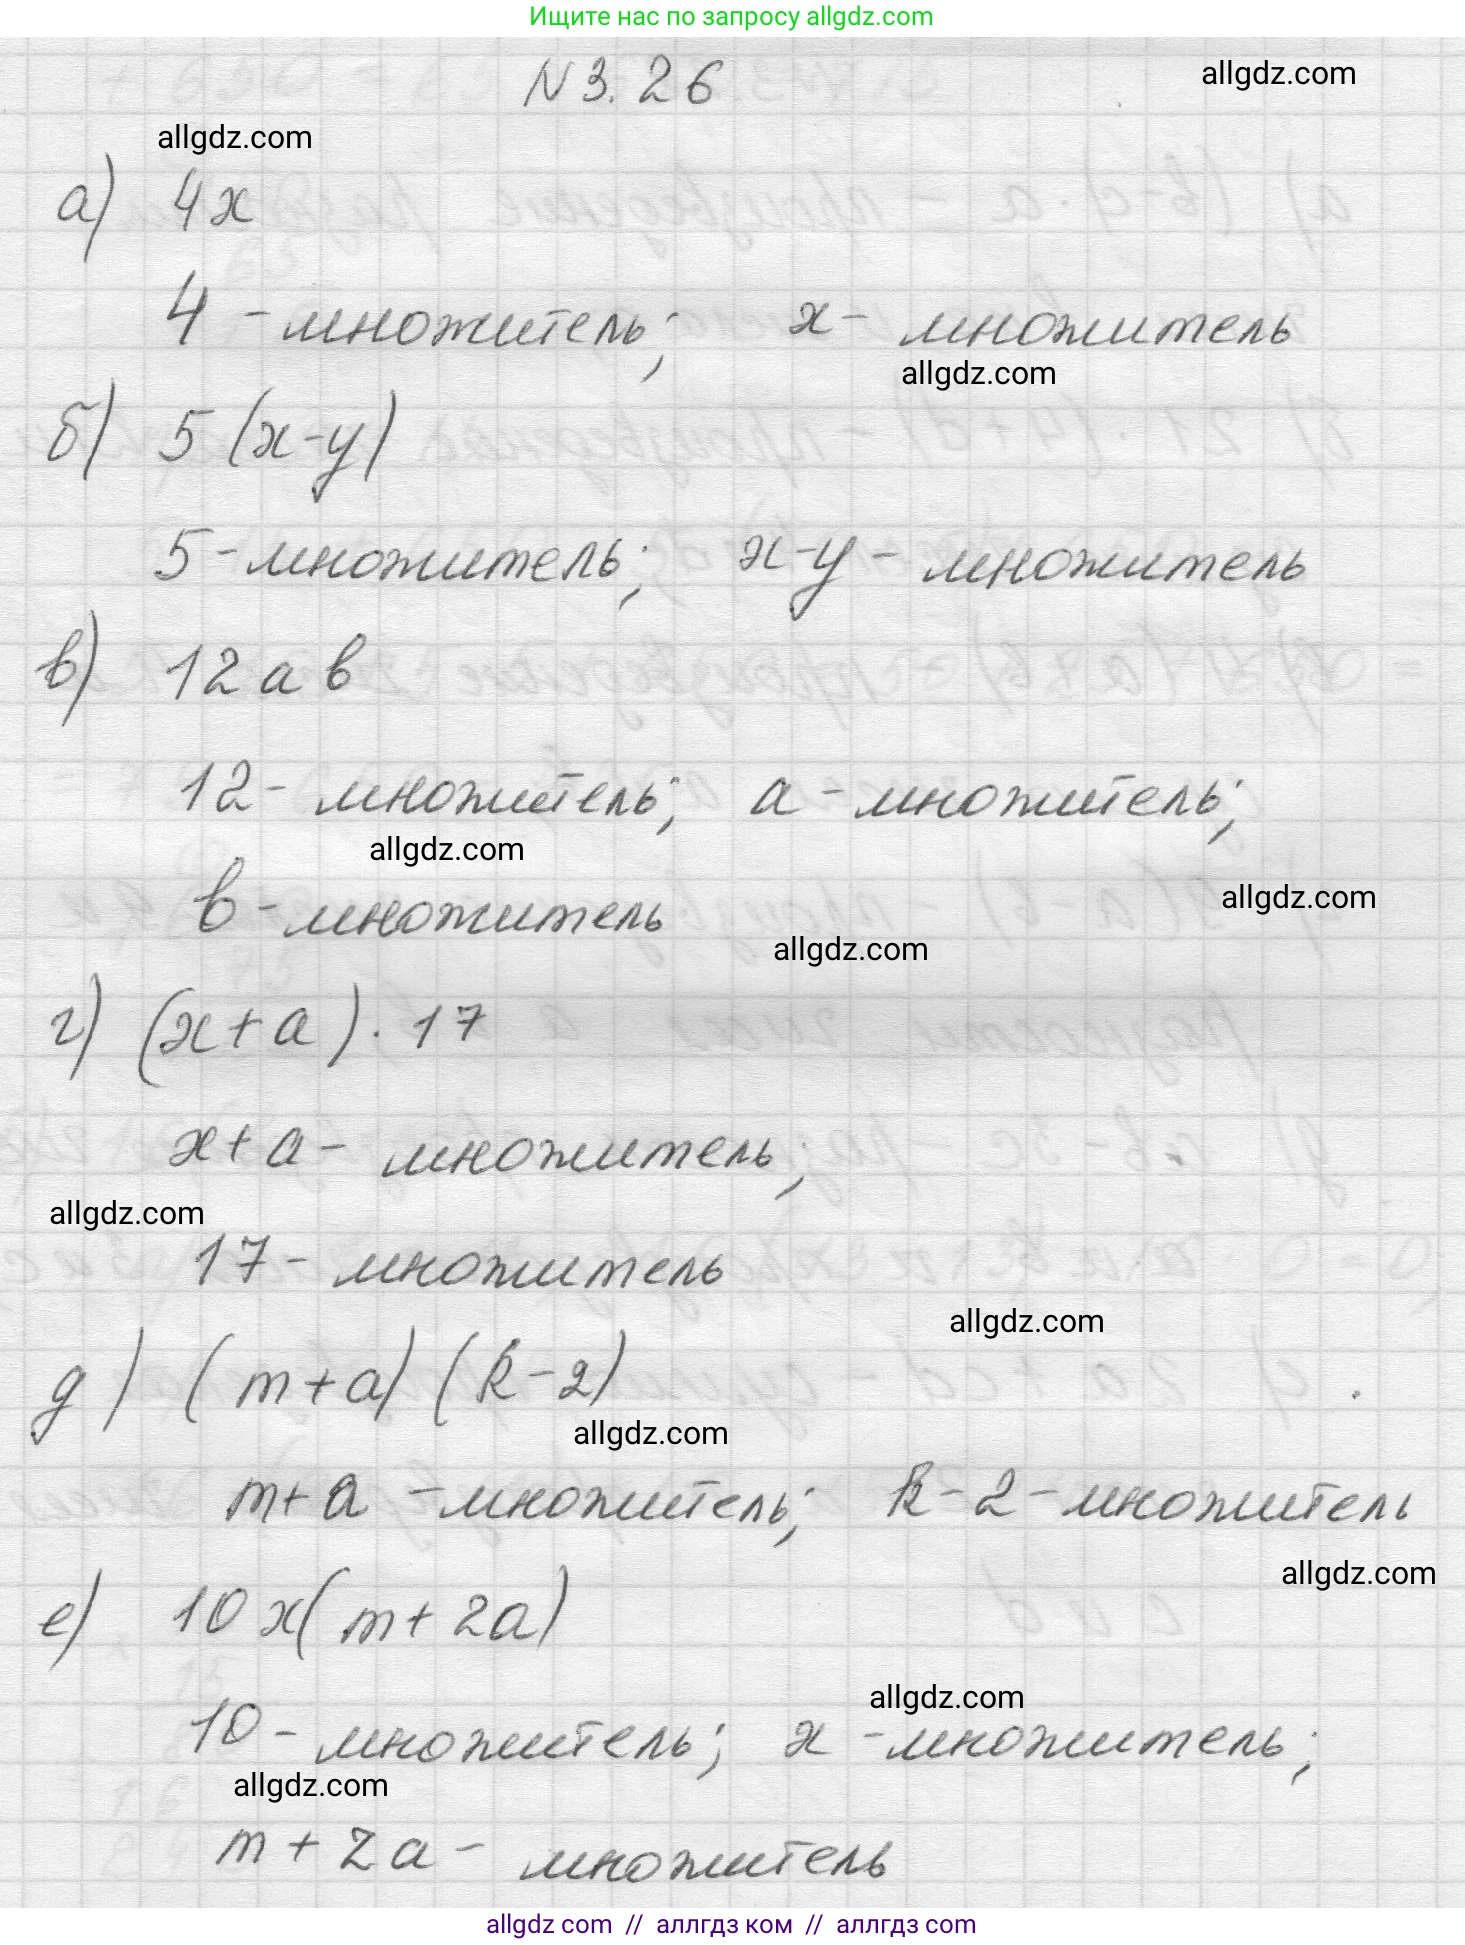 Ищите нас по запросу allgdz.com
N 3.26
allgdz.com
allgdz.com
а) 4x
4 - множитель; x - множитель
allgdz.com
б) 5 (x-y)
5 - множитель; x-y - множитель
в) 12 a b
12 - множитель; a - множитель;
allgdz.com
b - множитель
allgdz.com
allgdz.com
г) (x+a) · 17
x+a - множитель;
allgdz.com
17 - множитель
allgdz.com
д) (m+a) (k-2)
allgdz.com
m+a - множитель; k-2 - множитель
allgdz.com
е) 10 x(m+2a)
allgdz.com
10 - множитель; x - множитель;
allgdz.com
m+2a - множитель
allgdz com // аллгдз ком // аллгдз com